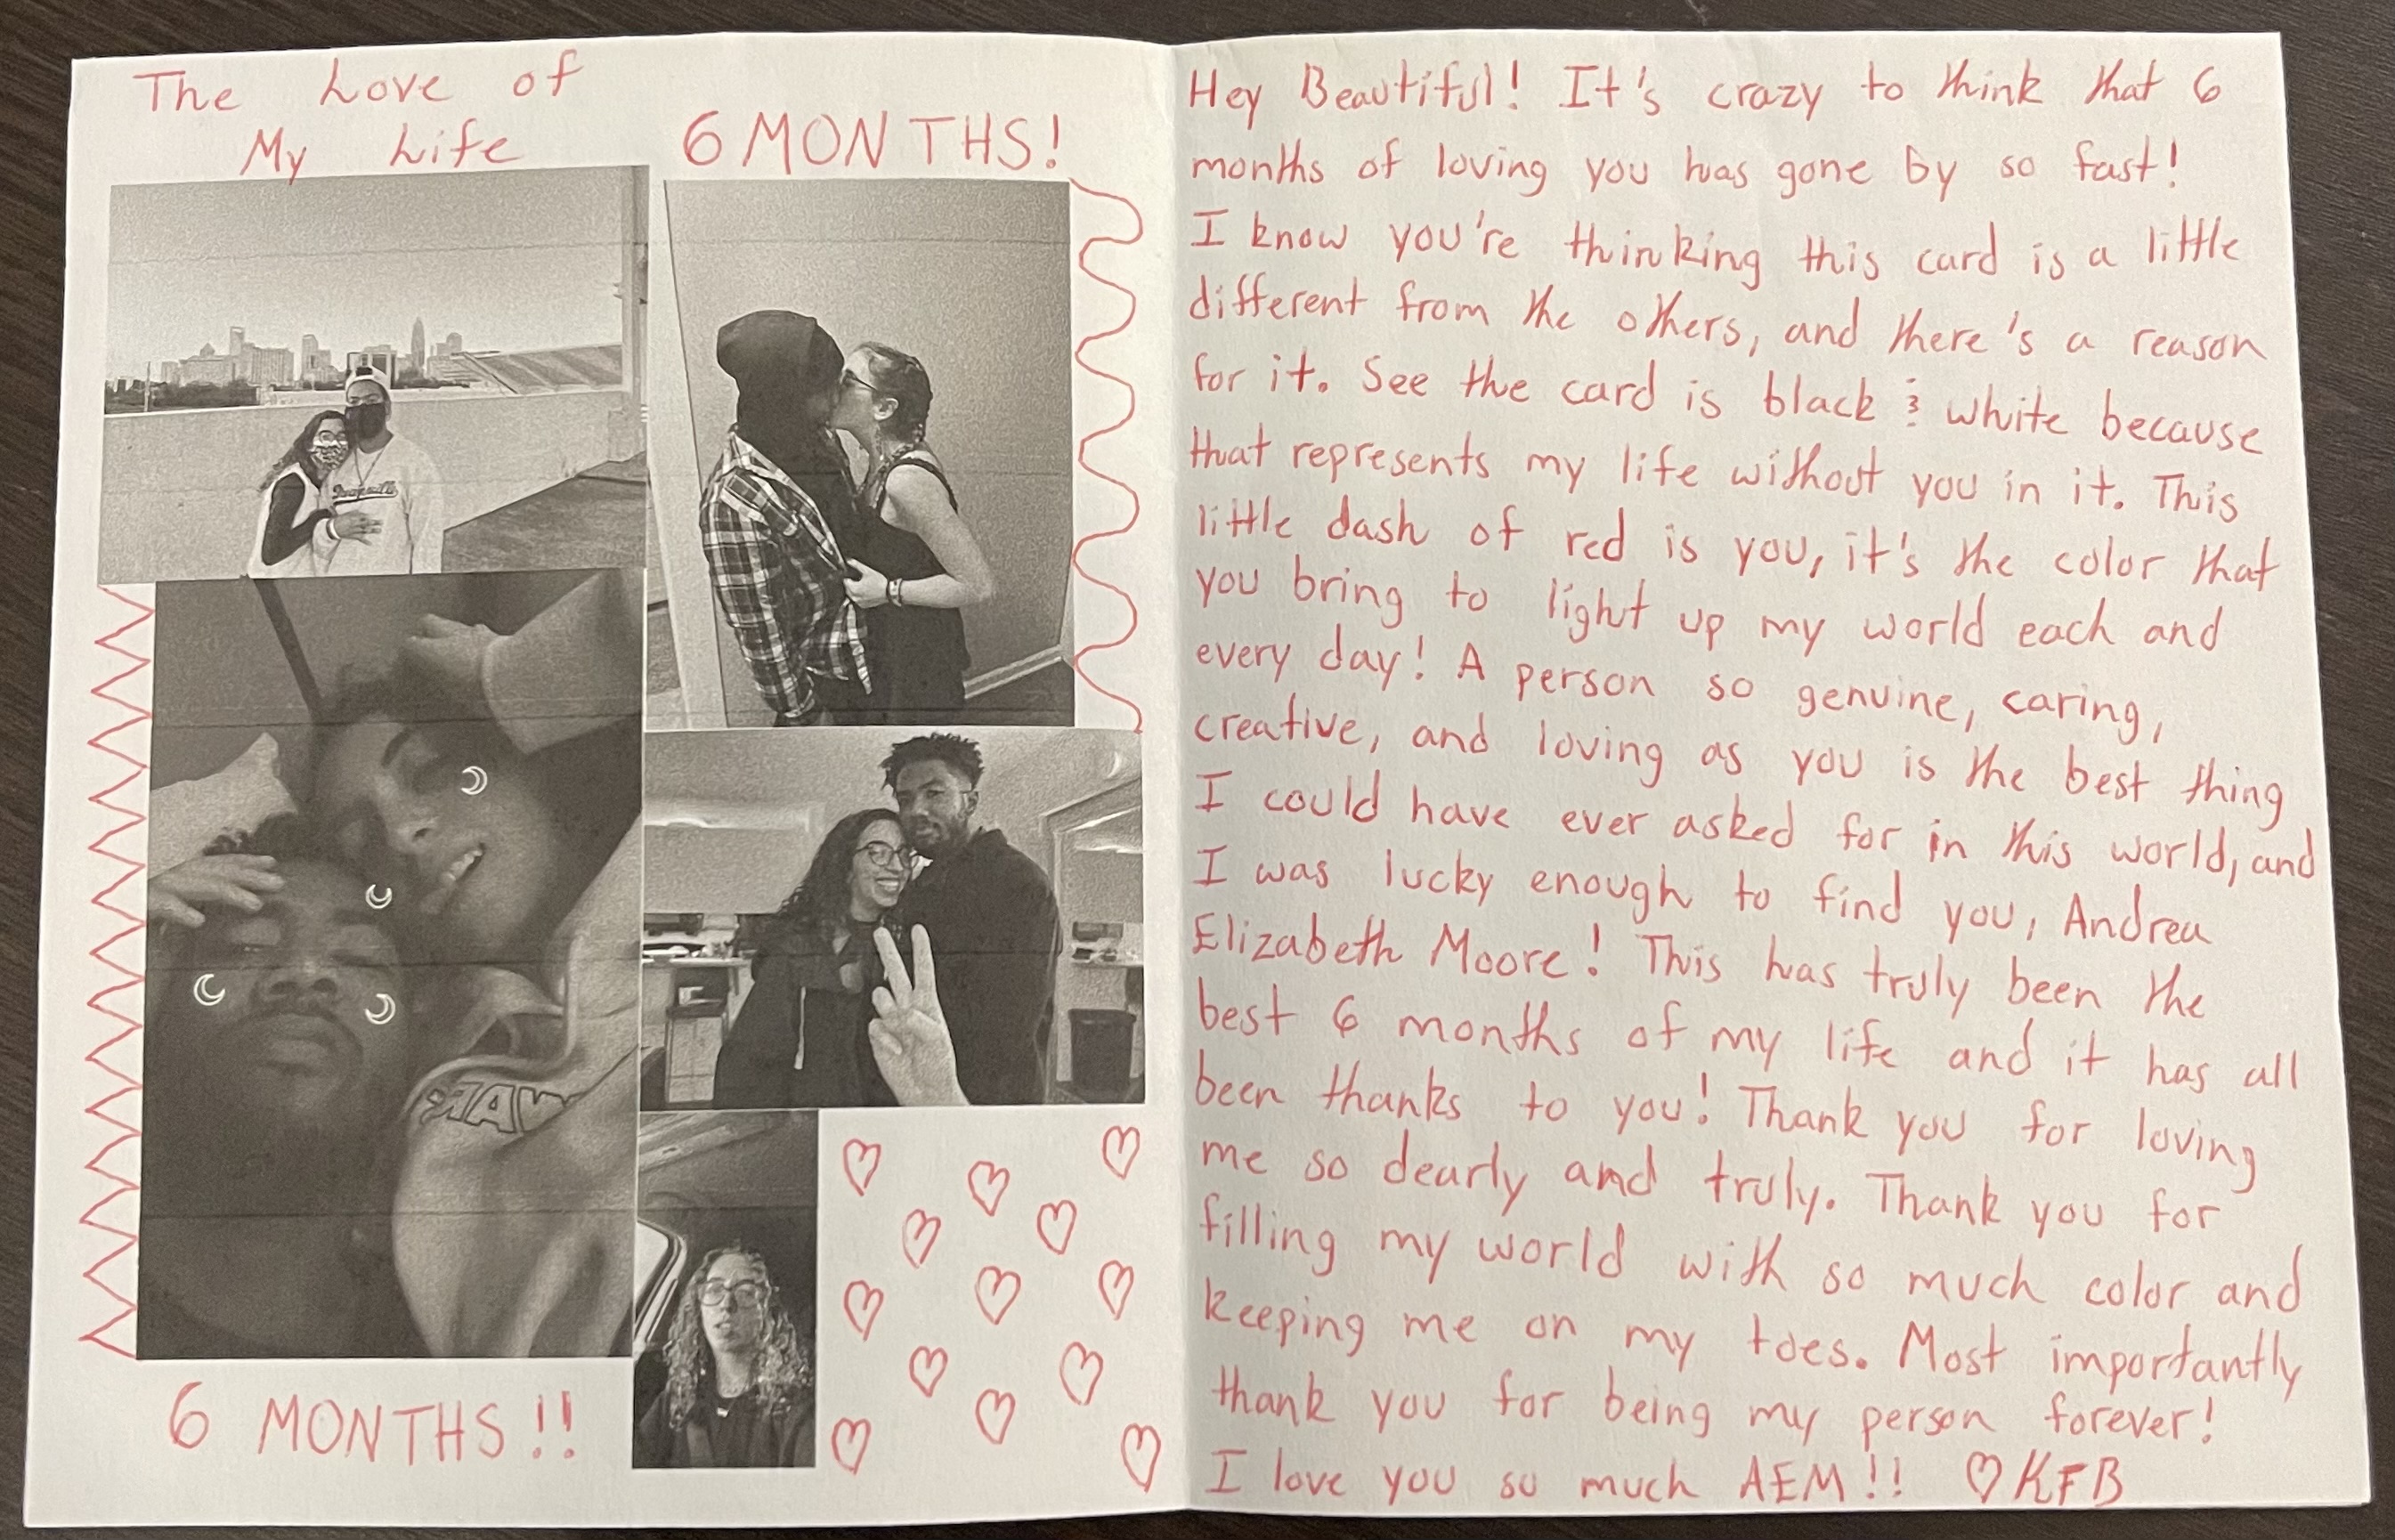 The Love of
My Life
6 MONTHS!
6 MONTHS!!
Hey Beautiful! It's crazy to think that 6
months of loving you has gone by so fast!
I know you're thinking this card is a little
different from the others, and there's a reason
for it. See the card is black & white because
that represents my life without you in it. This
little dash of red is you, it's the color that
you bring to light up my world each and
every day! A person so genuine, caring,
creative, and loving as you is the best thing
I could have ever asked for in this world, and
I was lucky enough to find you, Andrea
Elizabeth Moore! This has truly been the
best 6 months of my life and it has all
been thanks to you! Thank you for loving
me so dearly and truly. Thank you for
filling my world with so much color and
keeping me on my toes. Most importantly
thank you for being my person forever!
I love you so much AEM!! ♡KFB